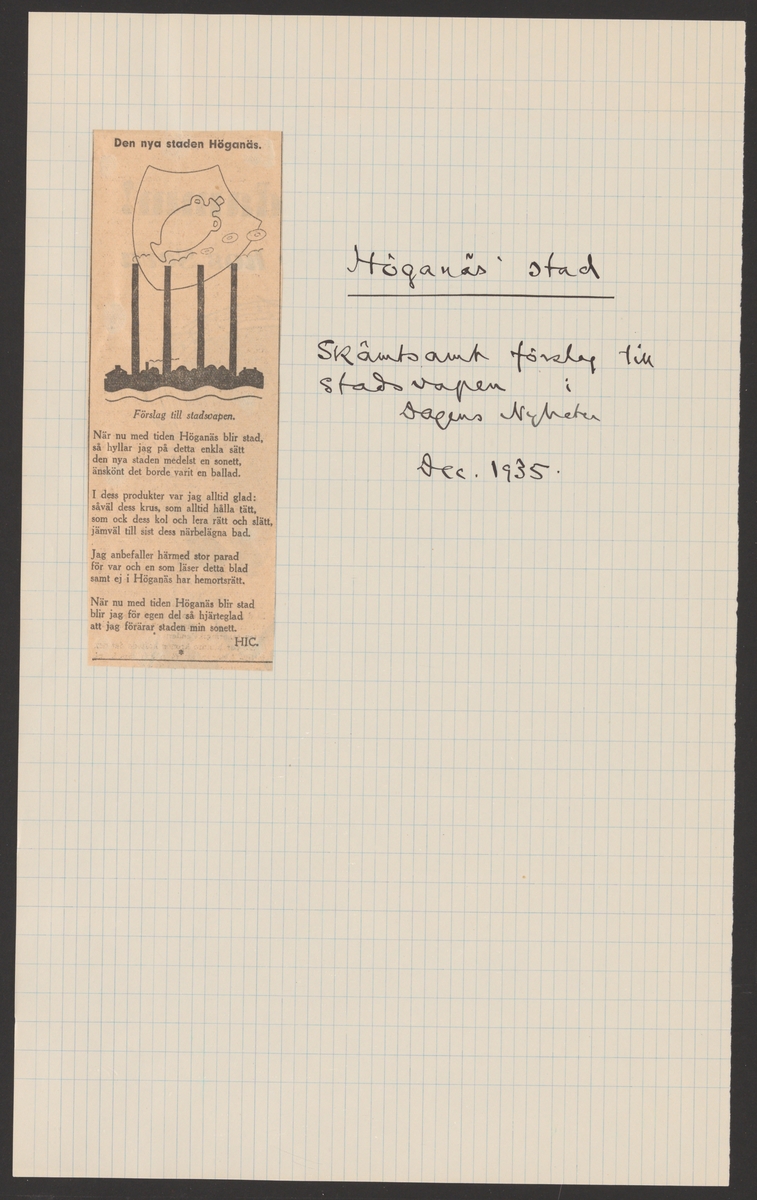 Den nya staden Höganäs.
Förslag till stadsvapen.
När nu med tiden Höganäs blir stad,
så hyllar jag på detta enkla sätt
den nya staden medelst en sonett,
änskönt det borde varit en ballad.
I dess produkter var jag alltid glad:
såväl dess krus, som alltid hålla tätt,
som ock dess kol och lera rätt och slätt,
jämväl till sist dess närbelägna bad.
Jag anbefaller härmed stor parad
för var och en som läser detta blad
samt ej i Höganäs har hemortsrätt.
När nu med tiden Höganäs blir stad
blir jag för egen del så hjärteglad
att jag förärar staden min sonett.
HIC.
Höganäs stad
Skämtsamt förslag till
stadsvapen i
Dagens Nyheter
Dec. 1935.